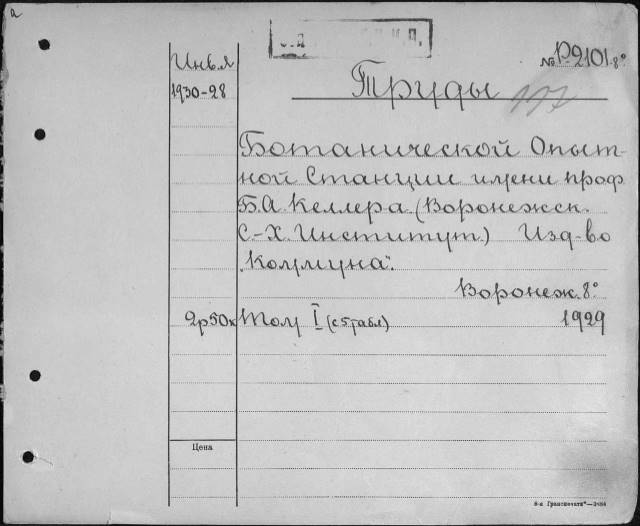 а
Инв.я № Р-2101 8°
1930-28 Труды
Ботанической Опыт-
ной Станции имени проф
Б.А. Келлера. (Воронежск.
С.-Х. Институт.) Изд-во
„Коммуна".
Воронеж. 8°
2р50к Том I (с 5 табл) 1929
Цена